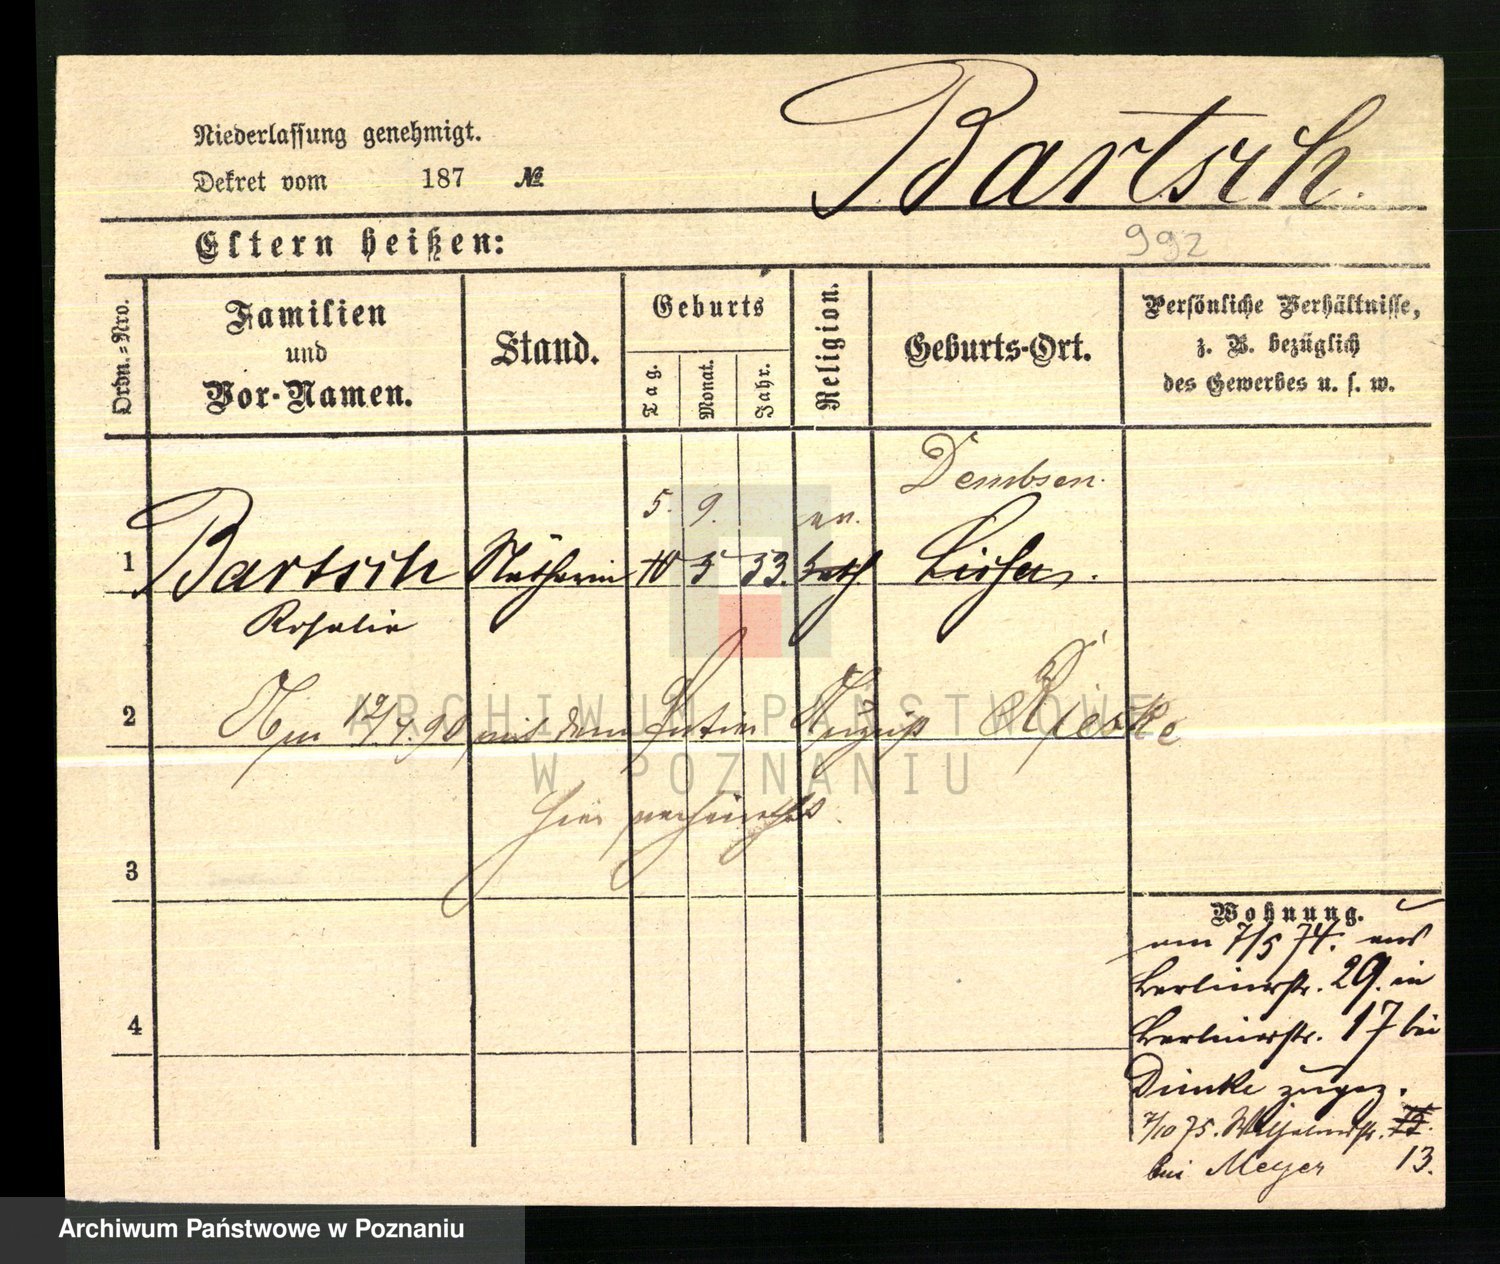 Bartsch.
Niederlassung genehmigt.
Dekret vom 187 №
992
Eltern heißen:
Ordn.=Nro.
Familien
und
Vor-Namen.
Stand.
Geburts
Tag.
Monat.
Jahr.
Religion.
Geburts-Ort.
Persönliche Verhältnisse,
z. B. bezüglich
des Gewerbes u. s. w.
Dembsen.
5. 9. ev.
1 Bartsch Näherin 10 5 53. kath
Rosalie
2 Am 12/4 90 mit dem Rieske
hier verheirathet.
3
Wohnung.
am 7/5 74. aus
Berlinerstr. 29. in
Berlinerstr. 17 bei
Dimke zugez.
4
7/10 75. Wilhelmstr.
bei Meyer 13.
ARCHIWUM PAŃSTWOWE
W POZNANIU
Archiwum Państwowe w Poznaniu